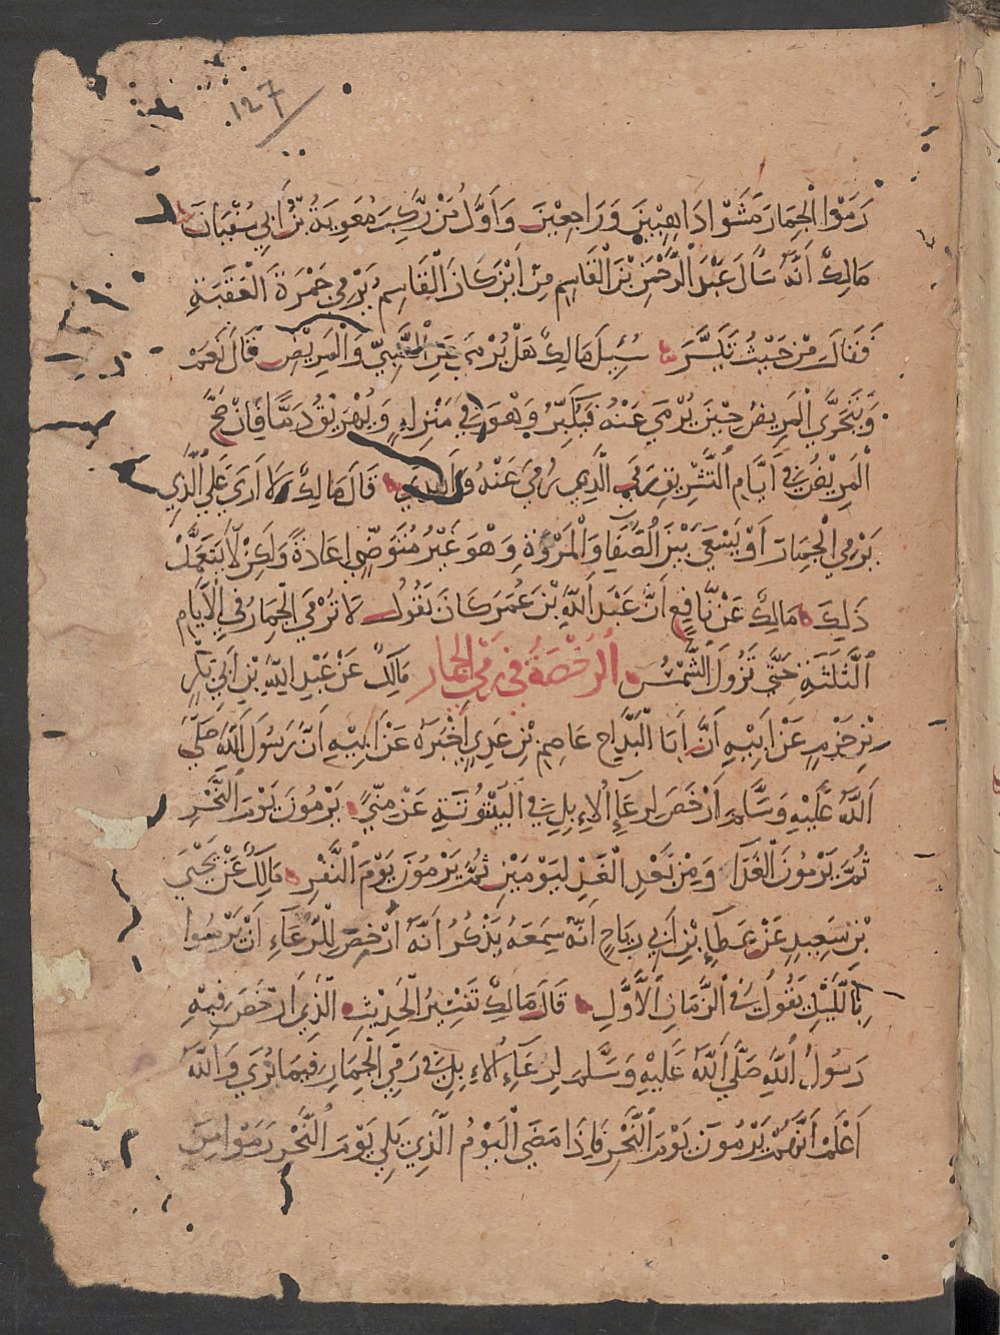 ١٢٧
رَمَوْا الْجِمَارَ مَشَوْا ذَاهِبِينَ وَرَاجِعِينَ وَأَوَّلُ مَنْ رَّكِبَ مُعَوِيَةُ بْنُ أَبِي سُفْيَانَ
مَالِكٌ أَنَّهُ سَأَلَ عَبْدَ الرَّحْمَنِ بْنَ الْقَاسِمِ مِنْ أَيْنَ كَانَ الْقَاسِمُ يَرْمِي جَمْرَةَ الْعَقَبَةِ
فَقَالَ مِنْ حَيْثُ تَيَسَّرَ سُئِلَ مَالِكٌ هَلْ يُرْمَى عَنِ الصَّبِيِّ وَالْمَرِيضِ قَالَ نَعَمْ
وَيَتَحَرَّى الْمَرِيضُ حِينَ يُرْمَى عَنْهُ فَيُكَبِّرُ وَهْوَ فِي مَنْزِلِهِ وَيُهَرِيقُ دَمًا فَإِنْ صَحَّ
الْمَرِيضُ فِي أَيَّامِ التَّشْرِيقِ رَمَى الَّذِي رُمِيَ عَنْهُ وَأَهْدَى قَالَ مَالِكٌ لَا أَرَى عَلَى الَّذِي
يَرْمِي الْجِمَارَ أَوْ يَسْعَى بَيْنَ الصَّفَا وَالْمَرْوَةِ وَهْوَ غَيْرُ مُتَوَضٍّ إِعَادَةً وَلَكِنْ لَّا يَتَعَمَّدْ
ذَلِكَ مَالِكٌ عَنْ نَّافِعٍ أَنَّ عَبْدَ اللَّهِ بْنَ عُمَرَ كَانَ يَقُولُ لَا تُرْمَى الْجِمَارُ فِي الْأَيَّامِ
الثَّلَثَةِ حَتَّى تَزُولَ الشَّمْسُ الرُّخْصَةُ فِي رَمْيِ الْجِمَارِ مَالِكٌ عَنْ عَبْدِ اللَّهِ بْنِ أَبِي بَكْرِ
بْنِ حَزْمٍ عَنْ أَبِيهِ أَنَّ أَبَا الْبَدَّاحِ عَاصِمِ بْنِ عَدِيٍ أَخْبَرَهُ عَنْ أَبِيهِ أَنَّ رَسُولَ اللَّهِ صَلَّى
اللَّهُ عَلَيْهِ وَسَلَّمَ أَرْخَصَ لِرِعَاءِ الْإِبِلِ فِي الْبَيْتُوتَةِ عَنْ مِنًى يَرْمُونَ يَوْمَ النَّحْرِ
ثُمَّ يَرْمُونَ الْغَدَا وَمِنْ بَعْدِ الْغَدِ لِيَوْمَيْنِ ثُمَّ يَرْمُونَ يَوْمَ النَّفْرِ مَالِكٌ عَنْ يَحْيَى
بْنِ سَعِيدٍ عَنْ عَطَاءِ بْنِ أَبِي رَبَاحٍ أَنَّهُ سَمِعَهُ يَذْكُرُ أَنَّهُ أُرْخِصَ لِلرِّعَاءِ أَنْ يَرْمُوا
بِاللَّيْلِ يَقُولُ فِي الزَّمَانِ الْأَوَّلِ قَالَ مَالِكٌ تَفْسِيرُ الْحَدِيثِ الَّذِي أَرْخَصَ فِيهِ
رَسُولُ اللَّهِ صَلَّى اللَّهُ عَلَيْهِ وَسَلَّمَ لِرِعَاءِ الْإِبِلِ فِي رَمْيِ الْجِمَارِ فِيمَا نُرَى وَاللَّهُ
أَعْلَمْ أَنَّهُمْ يَرْمُونَ يَوْمَ النَّحْرِ فَإِذَا مَضَى الْيَوْمُ الَّذِي يَلِي يَوْمَ النَّحْرِ رَمَوْا مِنَ